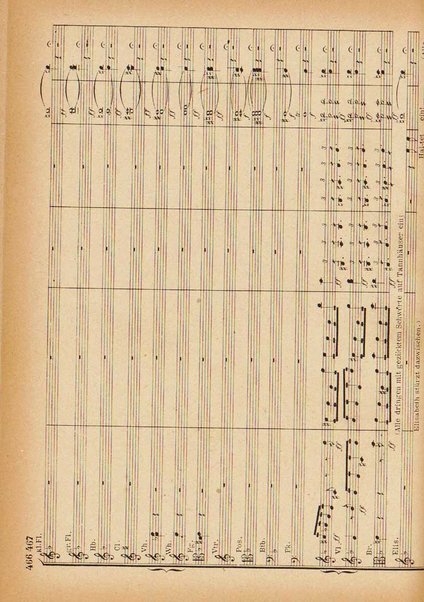 466 467
kl.Fl.
gr.Fl.
Hb.
Cl.
Vh.
Wh.
Fg.
Ttr.
Pos.
Btb.
Pk.
Vl.
Br.
(Alle dringen mit gezücktem Schwerte auf Tannhäuser ein;
Elis.
Elisabeth stürzt dazwischen.)
Haltet ein!